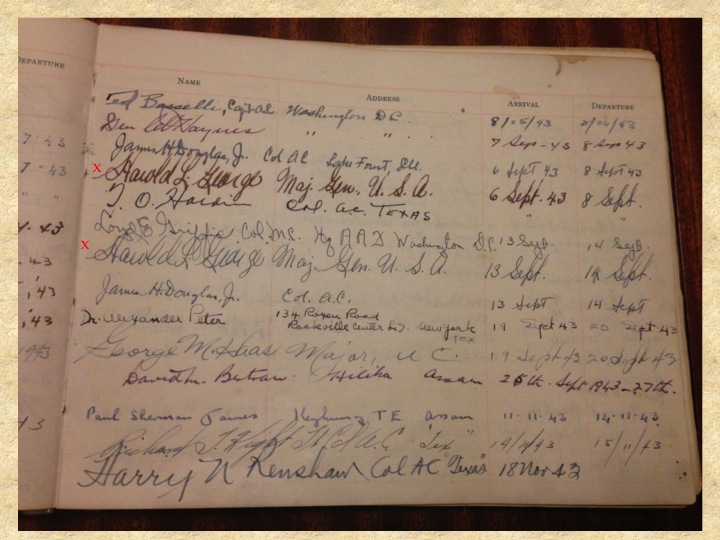 DEPARTURE
NAME ADDRESS ARRIVAL DEPARTURE
Ted Basselle, Capt AC Washington D.C. 8/25/43
Gen Haynes " " 7 Sept - 43 8 Sept 43
7 - 43
James H. Douglas, Jr. Col AC Lake Forest, Ill. 6 Sept 43 8 Sept 43
7 - 43
x Harold L. George Maj. Gen. U. S. A. 6 Sept. 43 8 Sept.
T. O. Col. A.C. TEXAS " "
4. 43
Loyd E Griffis Col. M.C. Hq A A F Washington D.C. 13 Sept. 14 Sept.
. 43
x Harold L. George Maj. Gen. U. S. A. 13 Sept. 14 Sept.
, 43
James H. Douglas, Jr. Col. A.C. 13 Sept 14 Sept
, 43
Dr. Alexander Peter 134 Road
Rockville Center New York 19 Sept 43 20 Sept 43
1943
George M. Major, A C. 19 Sept 43 20 Sept 43
David M. Hilika Assam 26th. Sept 1943 - 27th.
43
Paul Sherman James Keyhung T E Assam 11.11.43 14.11.43
Richard T. Knight Lt. Col A.C. "Tex" 14/11/43 15/11/43
Harry N Renshaw Col AC "Texas" 18 Nov 43